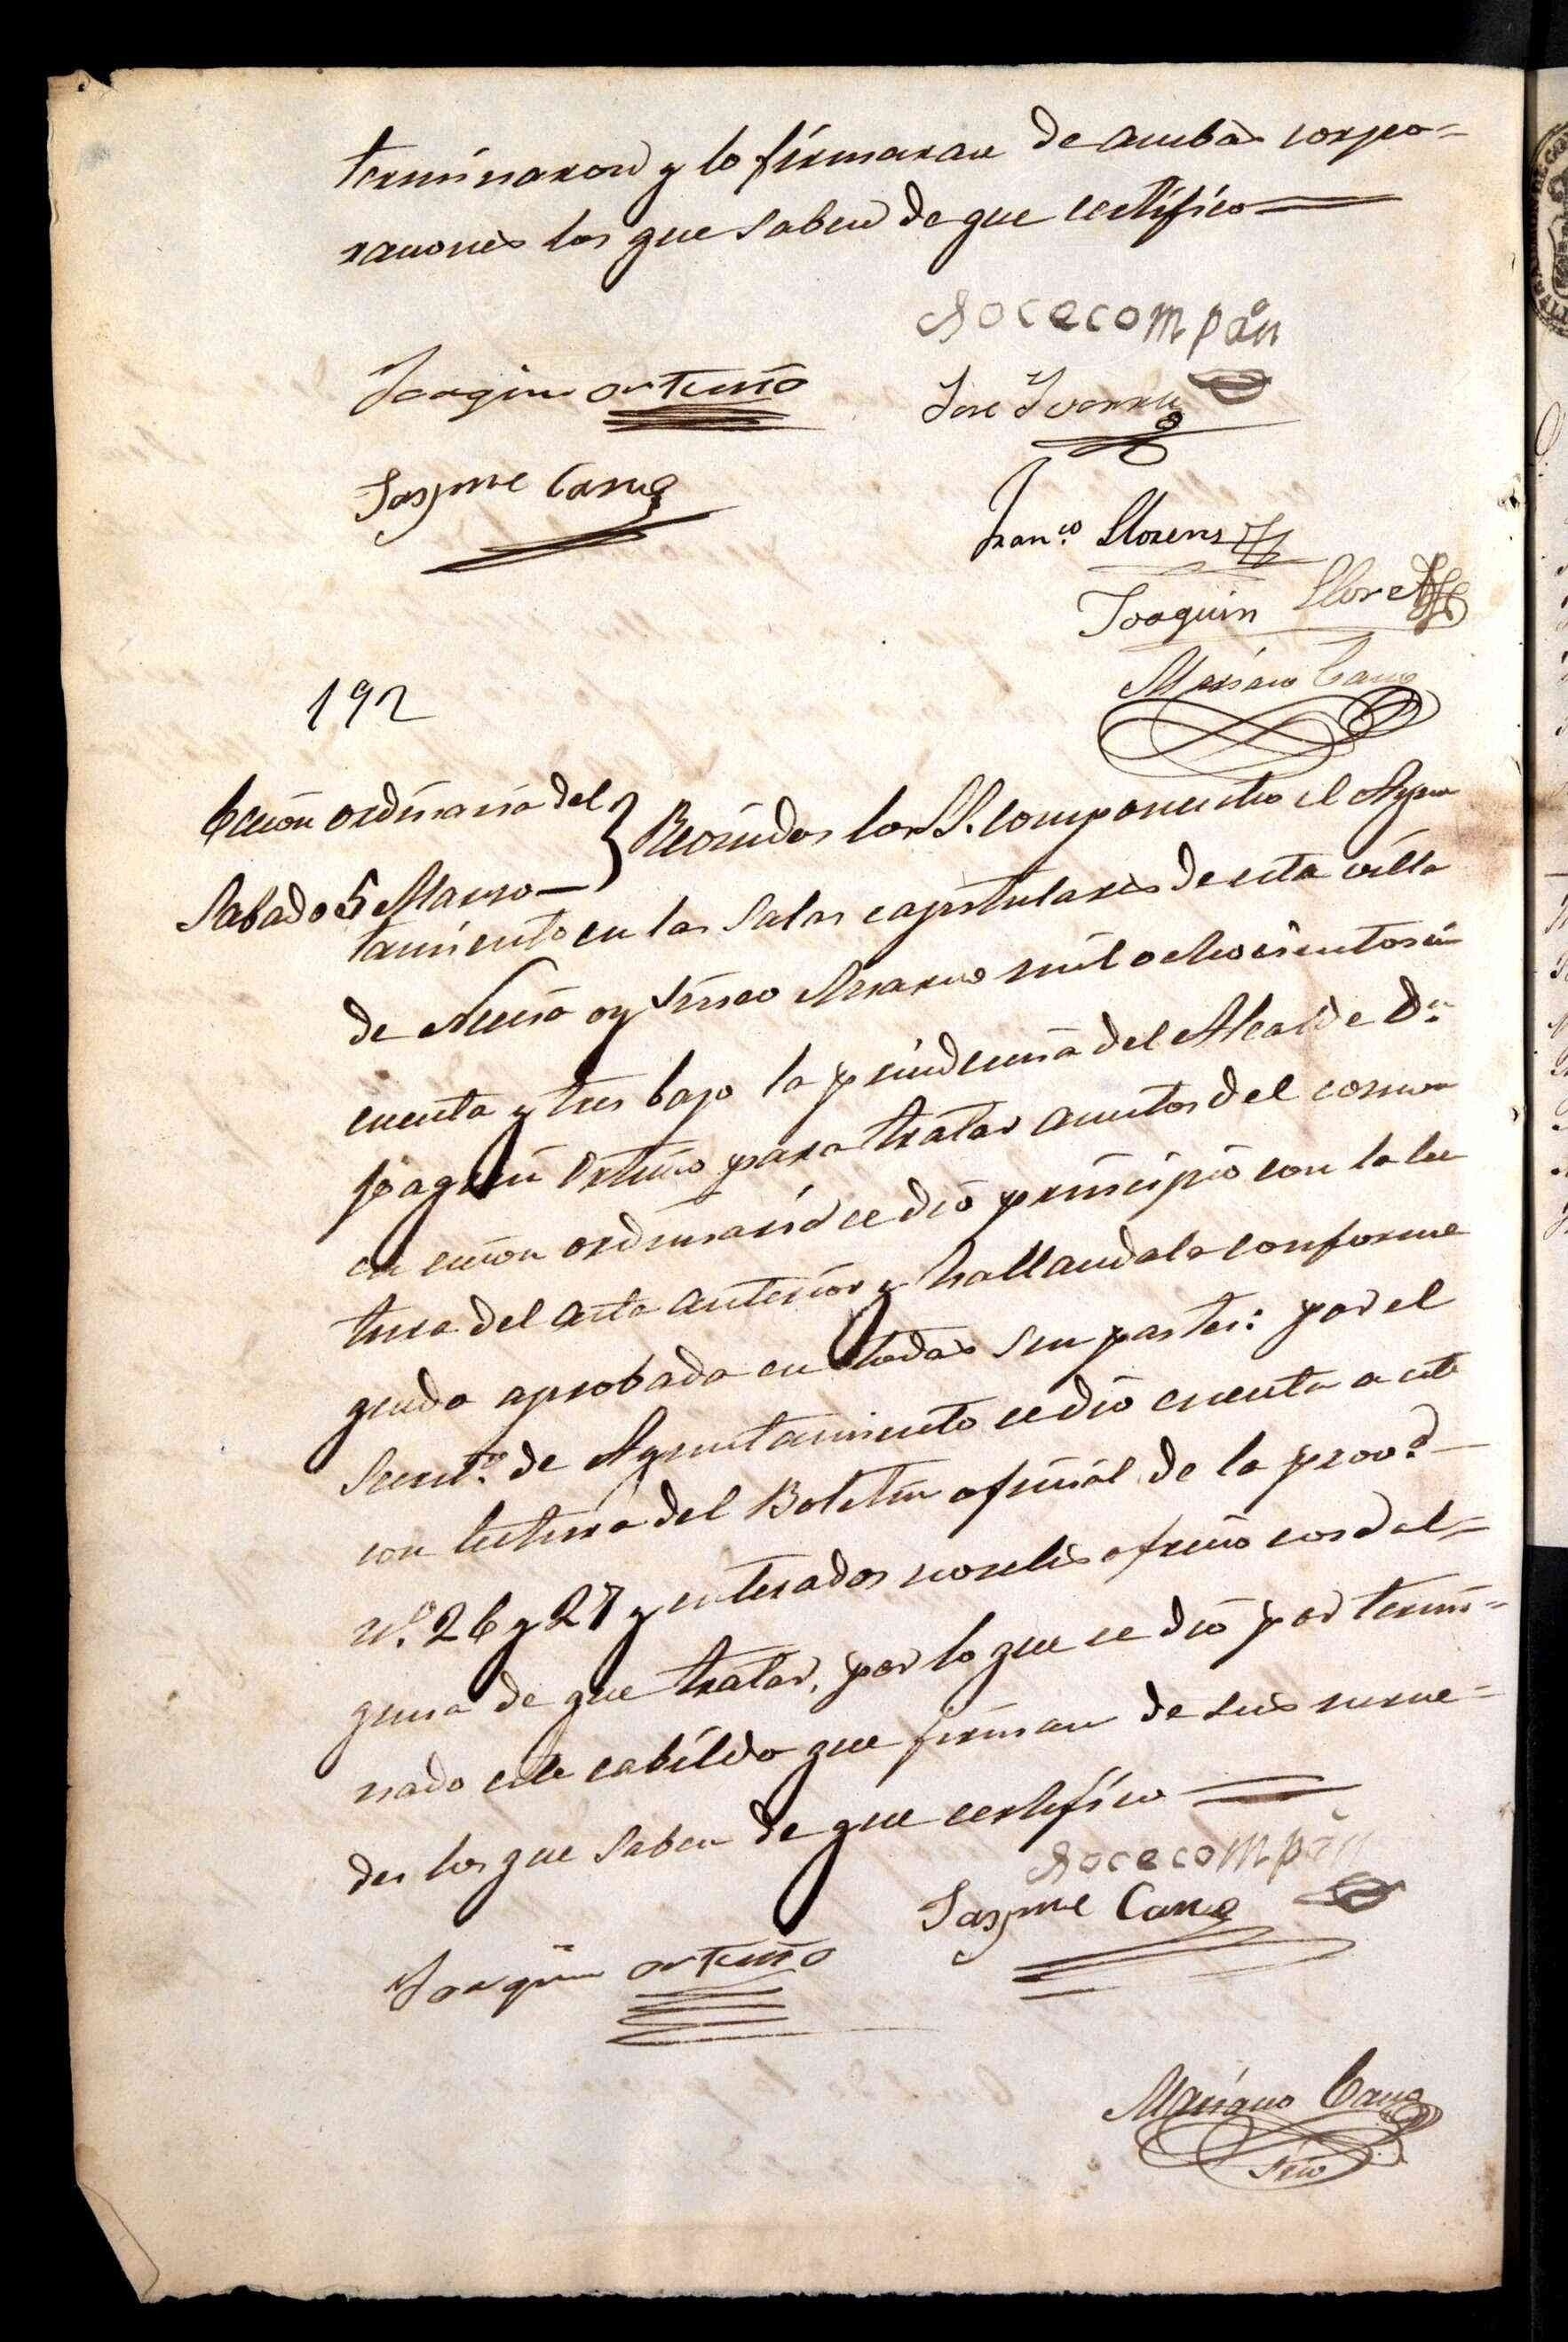 terminaron y lo firmaran de ambas corpo=
raciones los que saben de que certifico
Jocecompañ
Joaquin ortuño
Jose Yvorra
Jayme Cano
Fran.co Llorens
Joaquin Lloret
Mariano Cano
192
Cecion ordinaria del
Sabado 5 Marzo
Reonidos los SS. componentes el Ayun
tamiento en las Salas capitulares de esta villa
de Nucia oy Sinco Marzo mil ochocientos sin
cuenta y tres bajo la precidencia del Alcalde D.n
Joaquin Ortuño para tratar acuntos del comun
en cecion ordinaria ce dio principio con la lec
tura del acta anterior y hallandola conforme
queda aprobada en todas sus partes: por el
Secret.o de Ayuntamiento ce dio cuenta a este
con lectura del Boletin oficial de la prov.a
n.o 26 y 27 y enterados no se les ofrecio cosa al=
guna de que tratar, por lo que ce dio por termi=
nado este cabildo que firman de sus merce=
des los que saben de que certifico
Jocecompañ
Jayme Cano
Joaquin ortuño
Mariano Cano
Srio